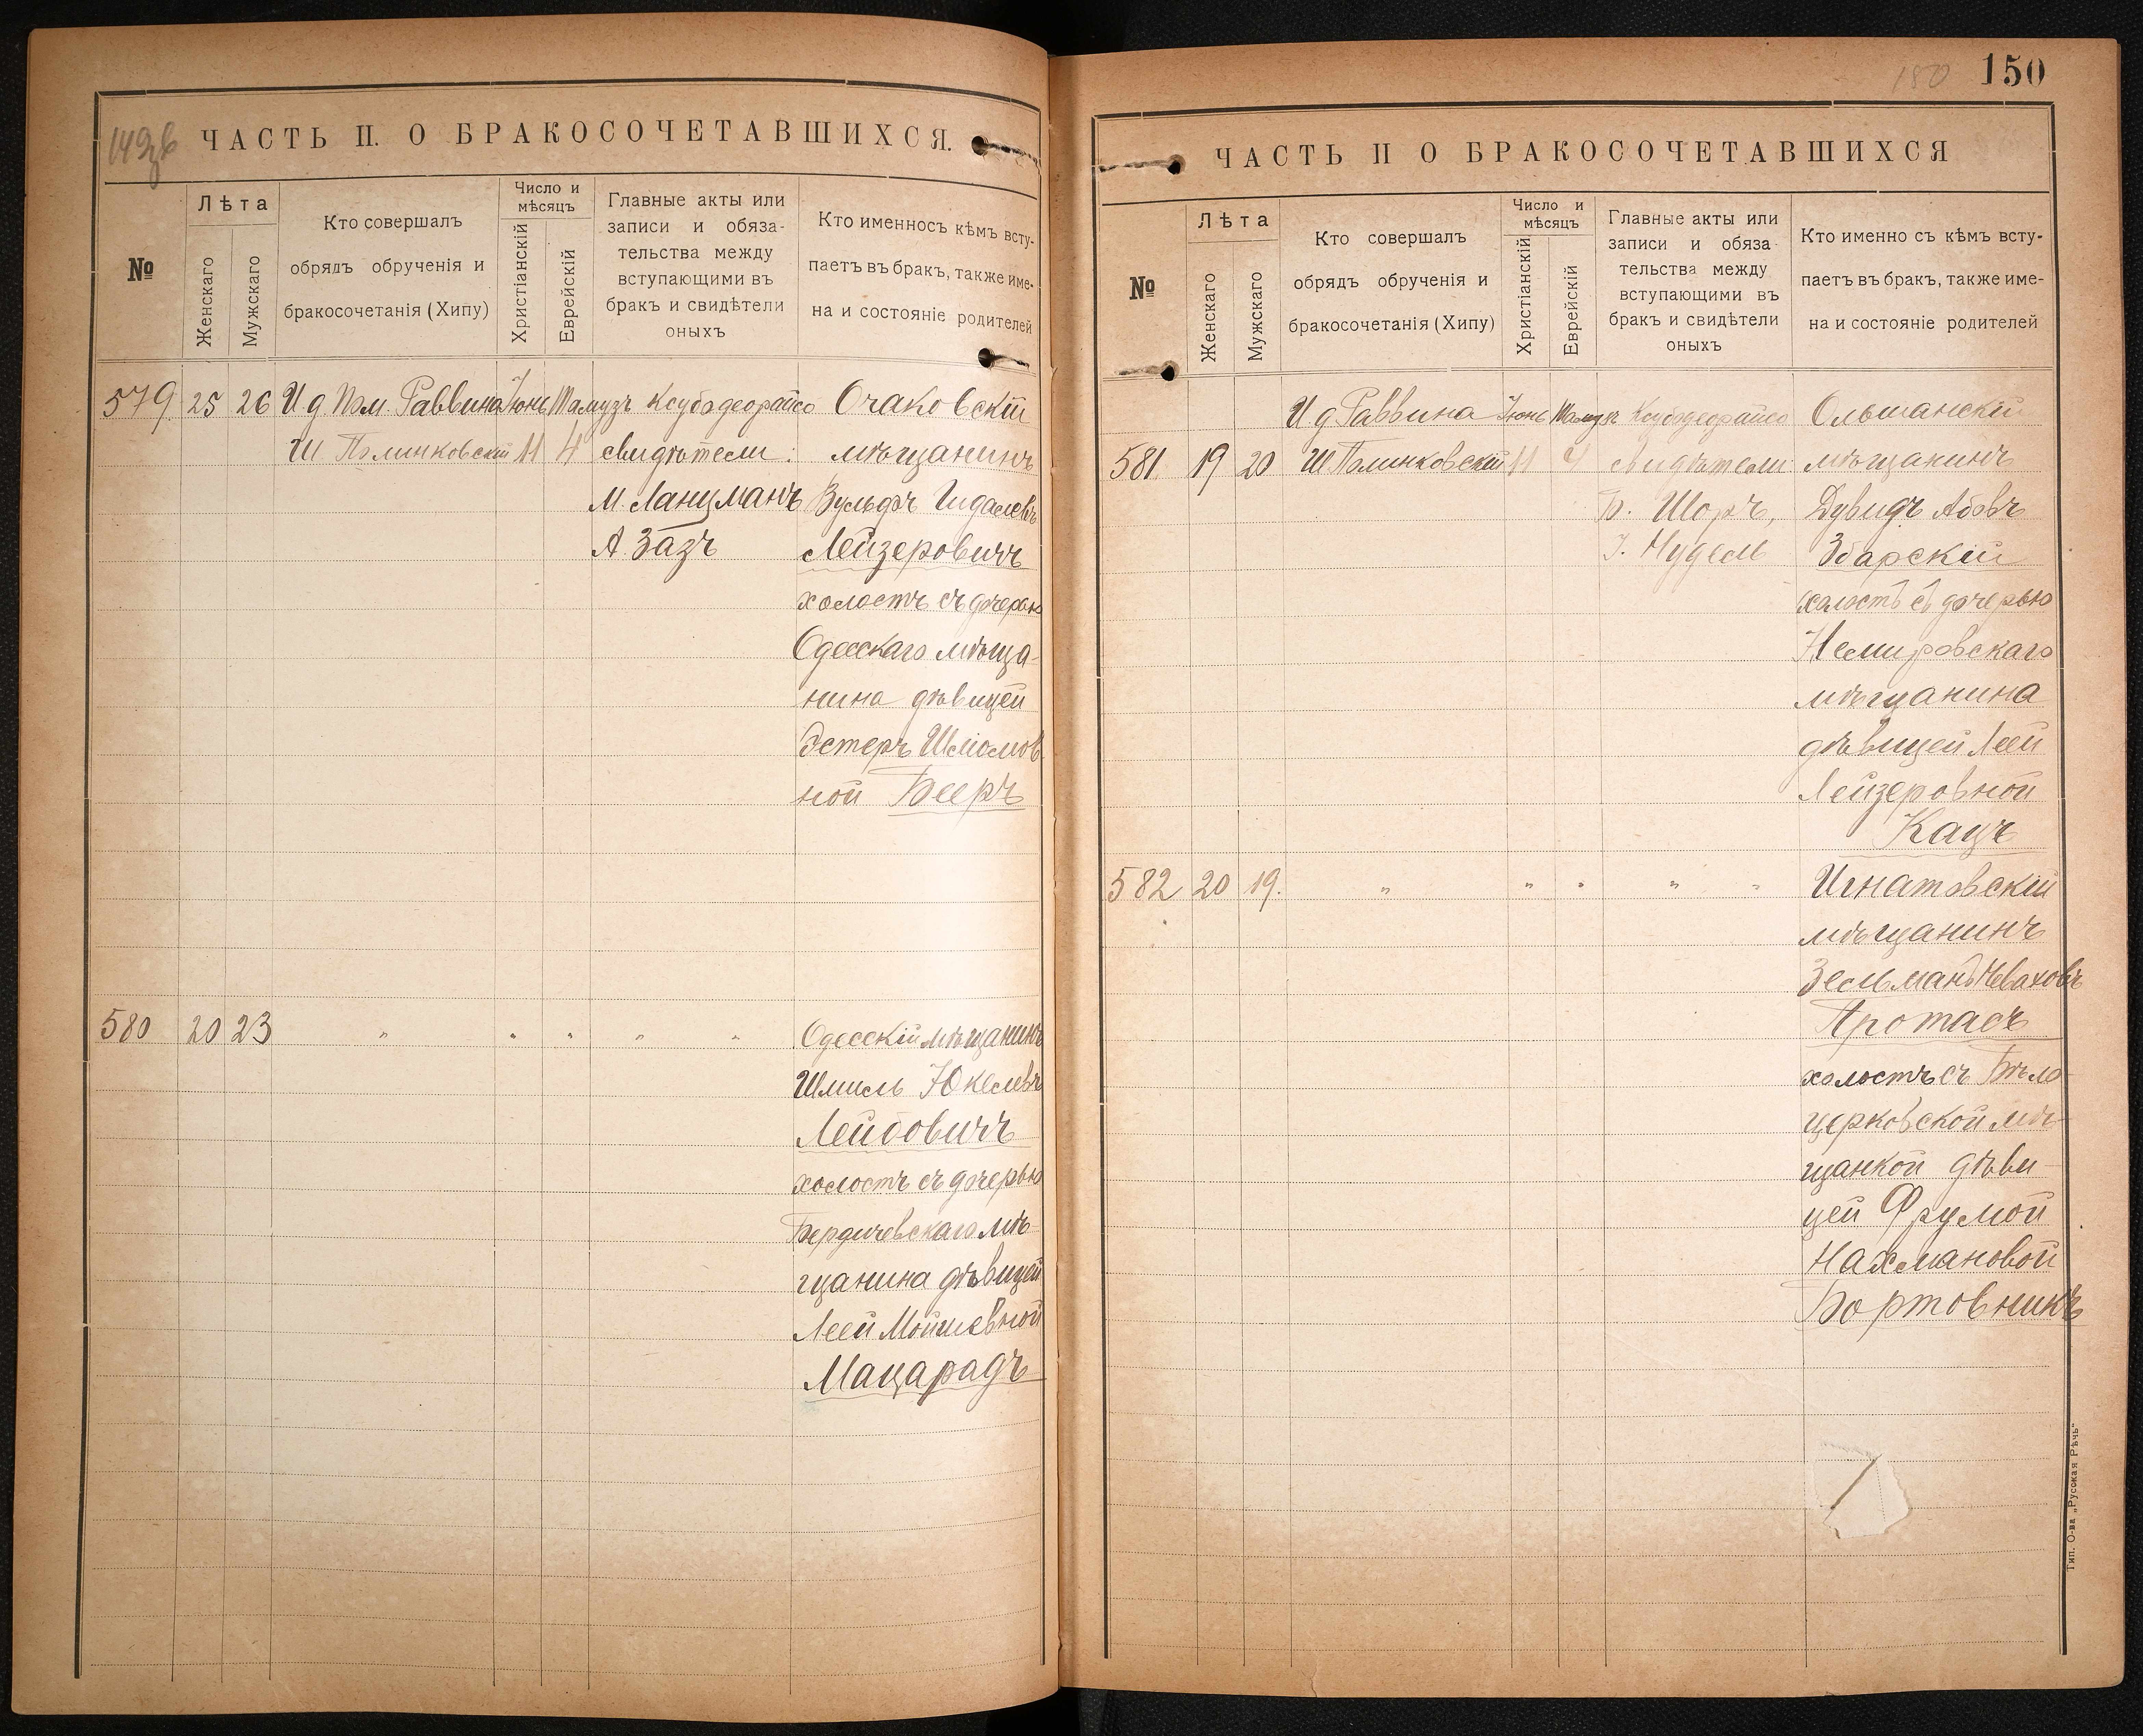 149 об
ЧАСТЬ II. О БРАКОСОЧЕТАВШИХСЯ.
№
Лѣта
Женскаго
Мужскаго
Кто совершалъ
обрядъ обрученія и
бракосочетанія (Хипу)
Число и
мѣсяцъ
Христіанскій
Еврейскій
Главные акты или
записи и обяза-
тельства между
вступающими въ
бракъ и свидѣтели
оныхъ
Кто именно съ кѣмъ всту-
паетъ въ бракъ, также име-
на и состояніе родителей
579 25 26 И д Пом. Раввина Іюнь Тамузъ Ксубодеорайсо Очаковскій
Ш Полинковскій 11 4 свидѣтели: мѣщанинъ
М. Ланцманъ Вульфъ Гидалевъ
А. Зазъ Лейзеровичъ
холостъ съ дочерью
Одесскаго мѣща-
нина дѣвицей
Эстеръ Шліомов
ной Бееръ
580 20 23 " " " " " Одесскій мѣщанинъ
Шмиль Юкелевъ
Лейбовичъ
холостъ съ дочерью
Бердичевскаго мѣ-
щанина дѣвицей
Леей Мойшевной
Мацарадъ
150 150
ЧАСТЬ II О БРАКОСОЧЕТАВШИХСЯ
№
Лѣта
Женскаго
Мужскаго
Кто совершалъ
обрядъ обрученія и
бракосочетанія (Хипу)
Число и
мѣсяцъ
Христіанскій
Еврейскій
Главные акты или
записи и обяза-
тельства между
вступающими въ
бракъ и свидѣтели
оныхъ
Кто именно съ кѣмъ всту-
паетъ въ бракъ, также име-
на и состояніе родителей
И д Раввина Іюнь Тамузъ Ксубодеорайсо Ольшанскій
581 19 20 Ш Полинковскій 11 4 свидѣтели мѣщанинъ
Б. Шоръ, Дувидъ Абовъ
І. Нудель Збарскій
холостъ съ дочерью
Немировскаго
мѣщанина
дѣвицей Леей
Лейзеровной
Кацъ
582 20 19. " " " " " Игнатовскій
мѣщанинъ
Зельманъ Невахов
Протасъ
холостъ съ Бѣло-
церковской мѣ-
щанкой дѣви-
цей Фрумой
Нахмановой
Бортовникъ
Тип. О-ва „Русская Рѣчь"